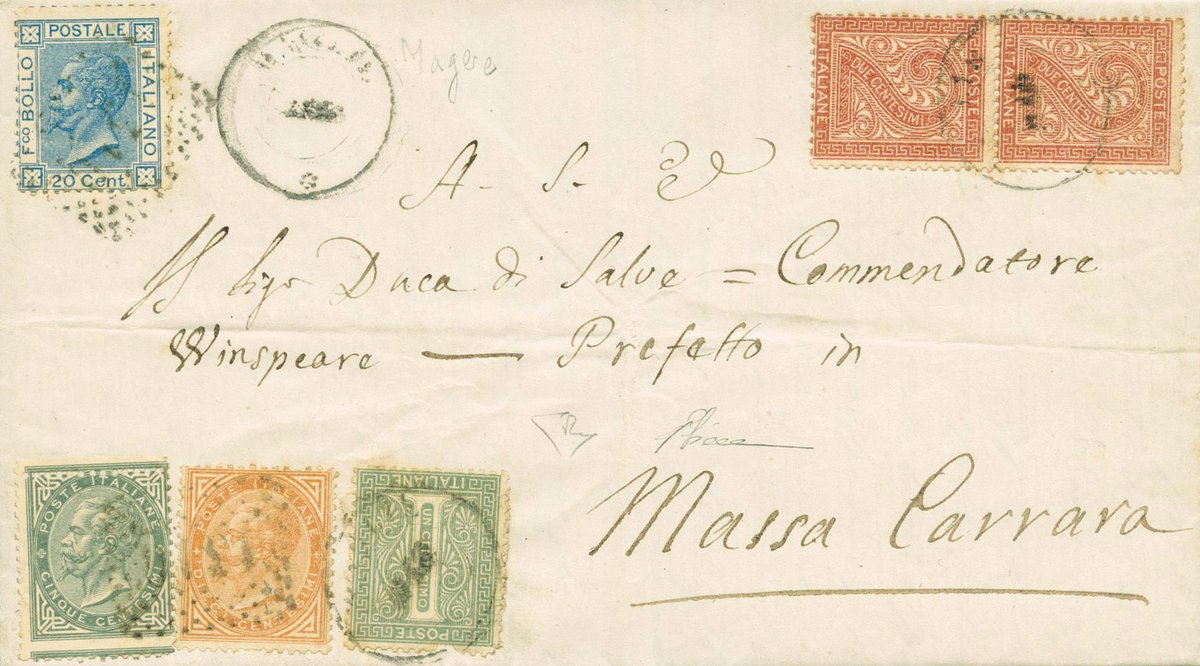 POSTALE
Fco BOLLO
ITALIANO
20 Cent.
Magere
POSTE
ITALIANE
DUE CENTESIMI
2
POSTE
ITALIANE
DUE CENTESIMI
2
A. S. E
Duca di Salve = Commendatore
Winspeare — Prefetto in
Massa Carrara
POSTE ITALIANE
CINQUE CENTESIMI
POSTE ITALIANE
DIECI CENTESIMI
ITALIANE
UN CENTESIMO
1
POSTE